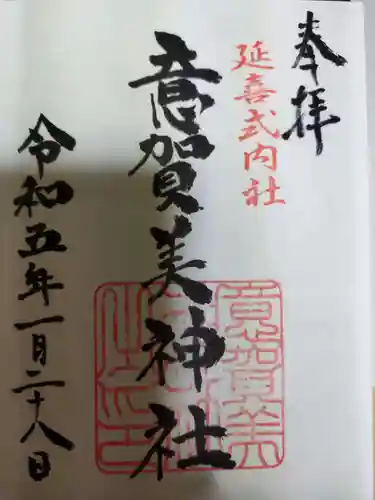 奉拝
延喜式内社
意賀美神社
令和五年一月二十八日
意賀美
神社
之印